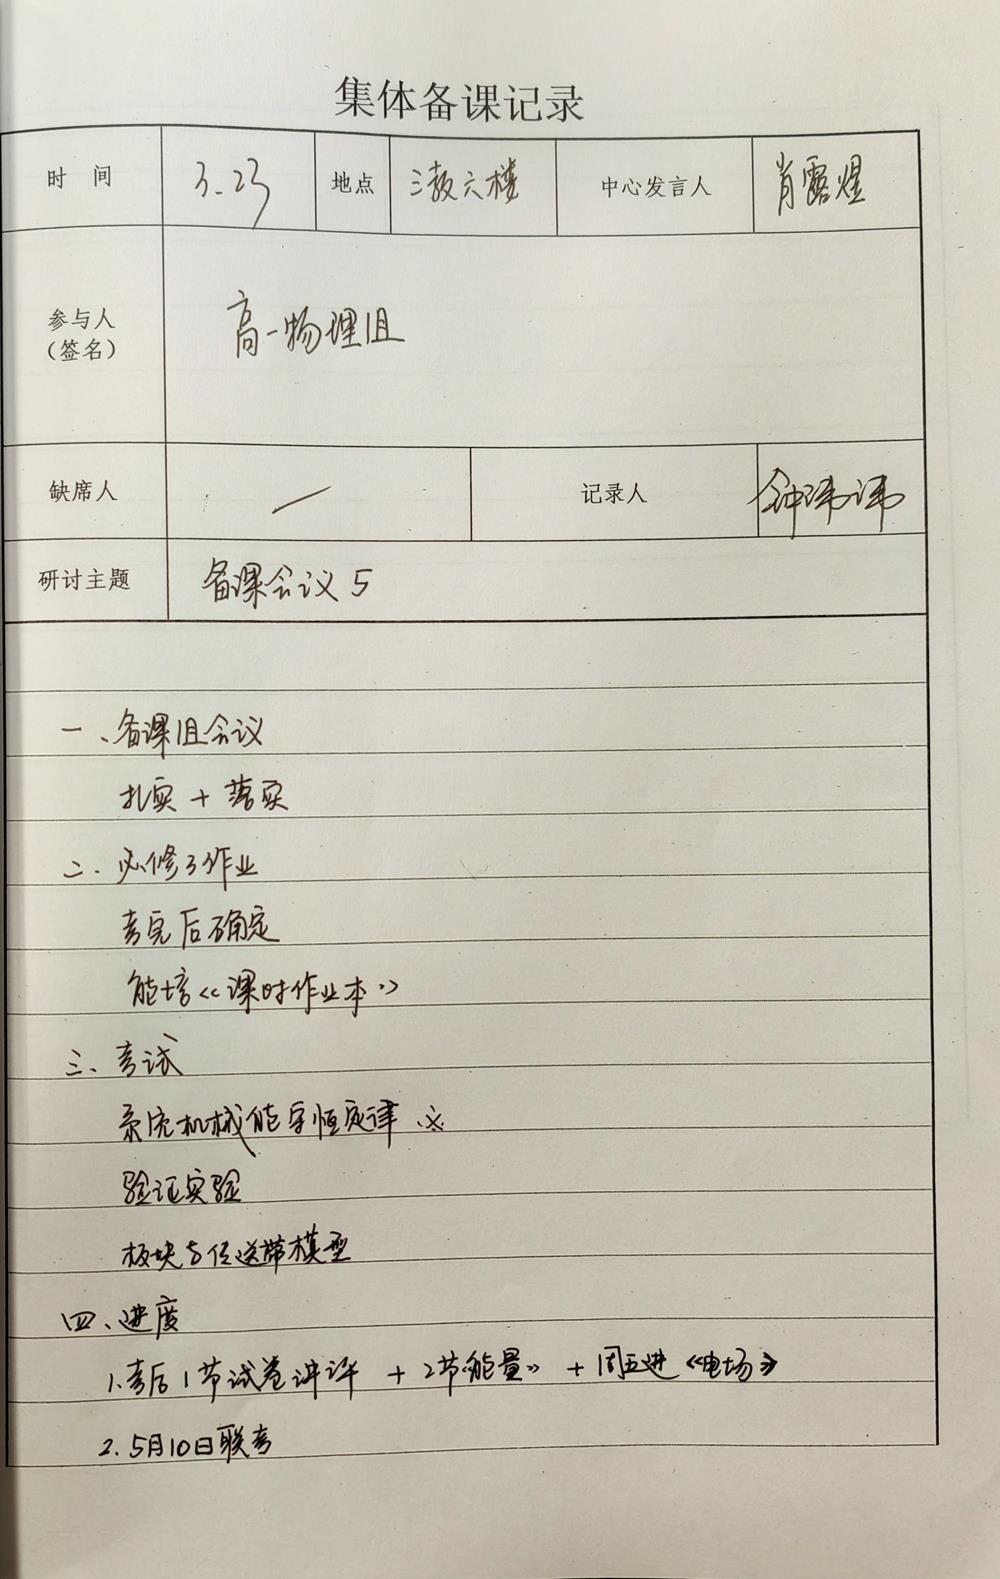 集体备课记录
时 间 3.23 地点 三教六楼 中心发言人 肖露煜
参与人
(签名) 高一物理组
缺席人 / 记录人 钟玮玮
研讨主题 备课会议5
一、备课组会议
扎实 + 落实
二、必修3作业
考完后确定
能培《课时作业本》
三、考试
系统机械能守恒定律 ※
验证实验
板块与传送带模型
四、进度
1.考后1节试卷讲评 + 2节《能量》 + 周五进《电场》
2.5月10日联考